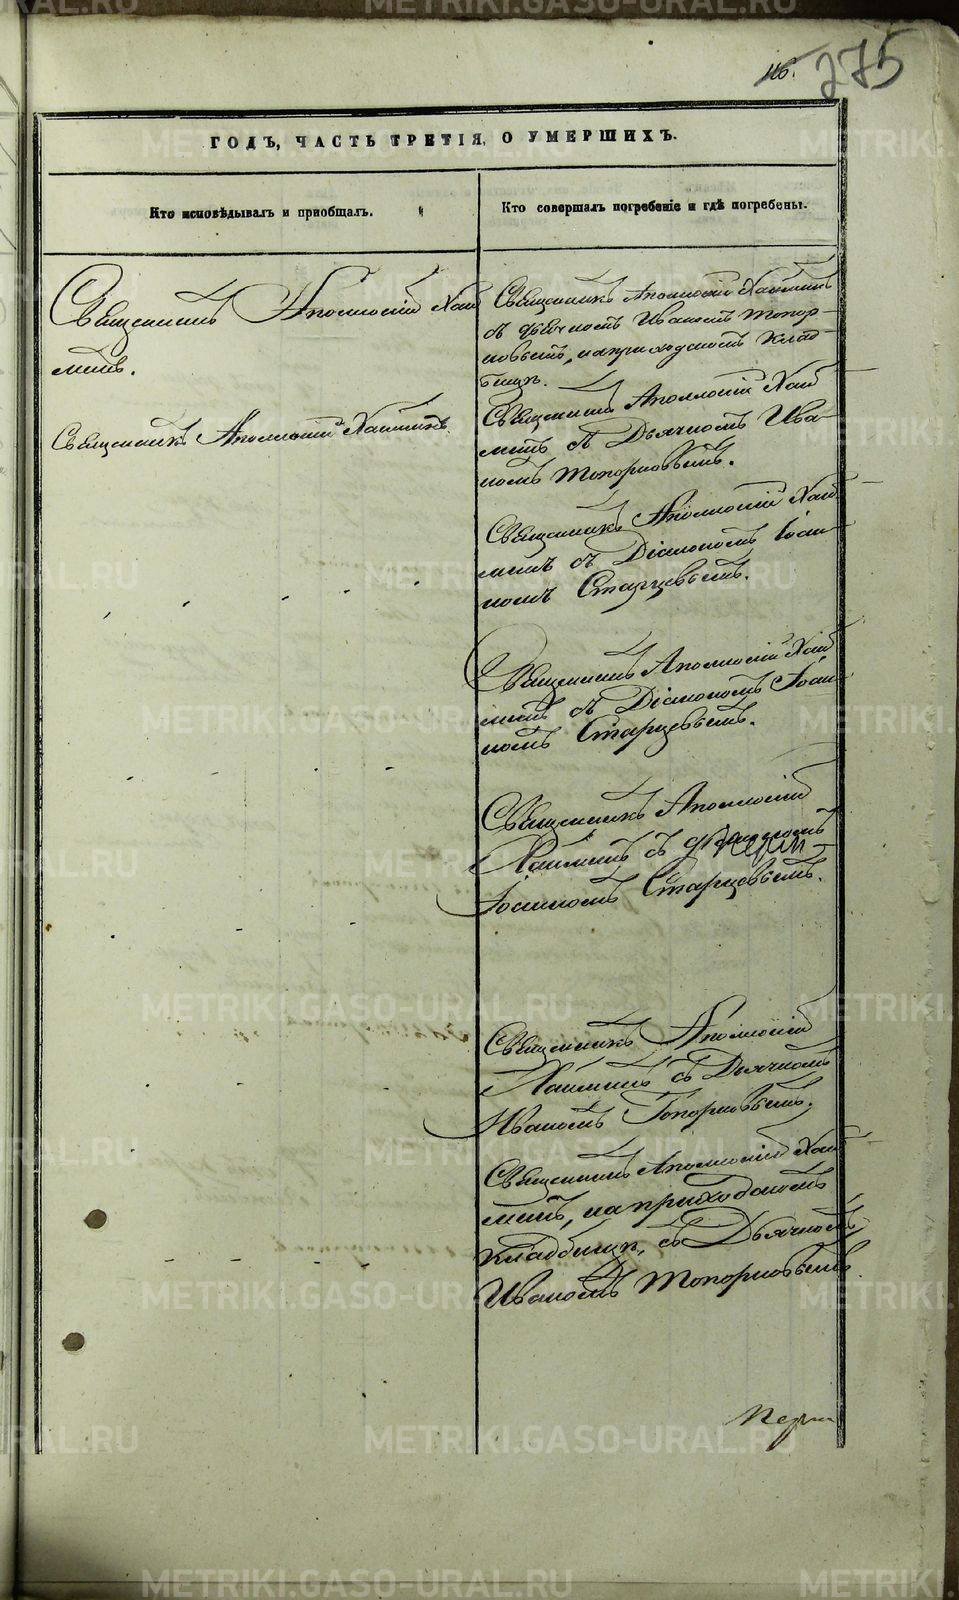 116. 275
ГОДЪ, ЧАСТЬ ТРЕТІЯ, О УМЕРШИХЪ.
Кто исповѣдывалъ и пріобщалъ.
Кто совершалъ погребеніе и гдѣ погребены.
Священникъ Аполлоній Хай
минъ.
Священникъ Аполлоній Хайминъ.
Священникъ Аполлоній Хайминъ
съ дьячкомъ Иваномъ Топор-
ковымъ, на приходскомъ клад-
бищѣ.
Священникъ Аполлоній Хай
минъ съ Дьячкомъ Ива-
номъ Топорковымъ.
Священникъ Аполлоній Хай
минъ съ Діакономъ Іоан
номъ Старцевымъ.
Священникъ Аполлоній Хай
минъ съ Діакономъ Іоан
номъ Старцевымъ.
Священникъ Аполлоній
Хайминъ съ
Іоанномъ Старцевымъ.
Священникъ Аполлоній
Хайминъ съ Дьячкомъ
Иваномъ Топорковымъ.
Священникъ Аполлоній Хай
минъ, на приходскомъ
кладбищѣ, съ Дьячкомъ
Иваномъ Топорковымъ
METRIKI.GASO-URAL.RU